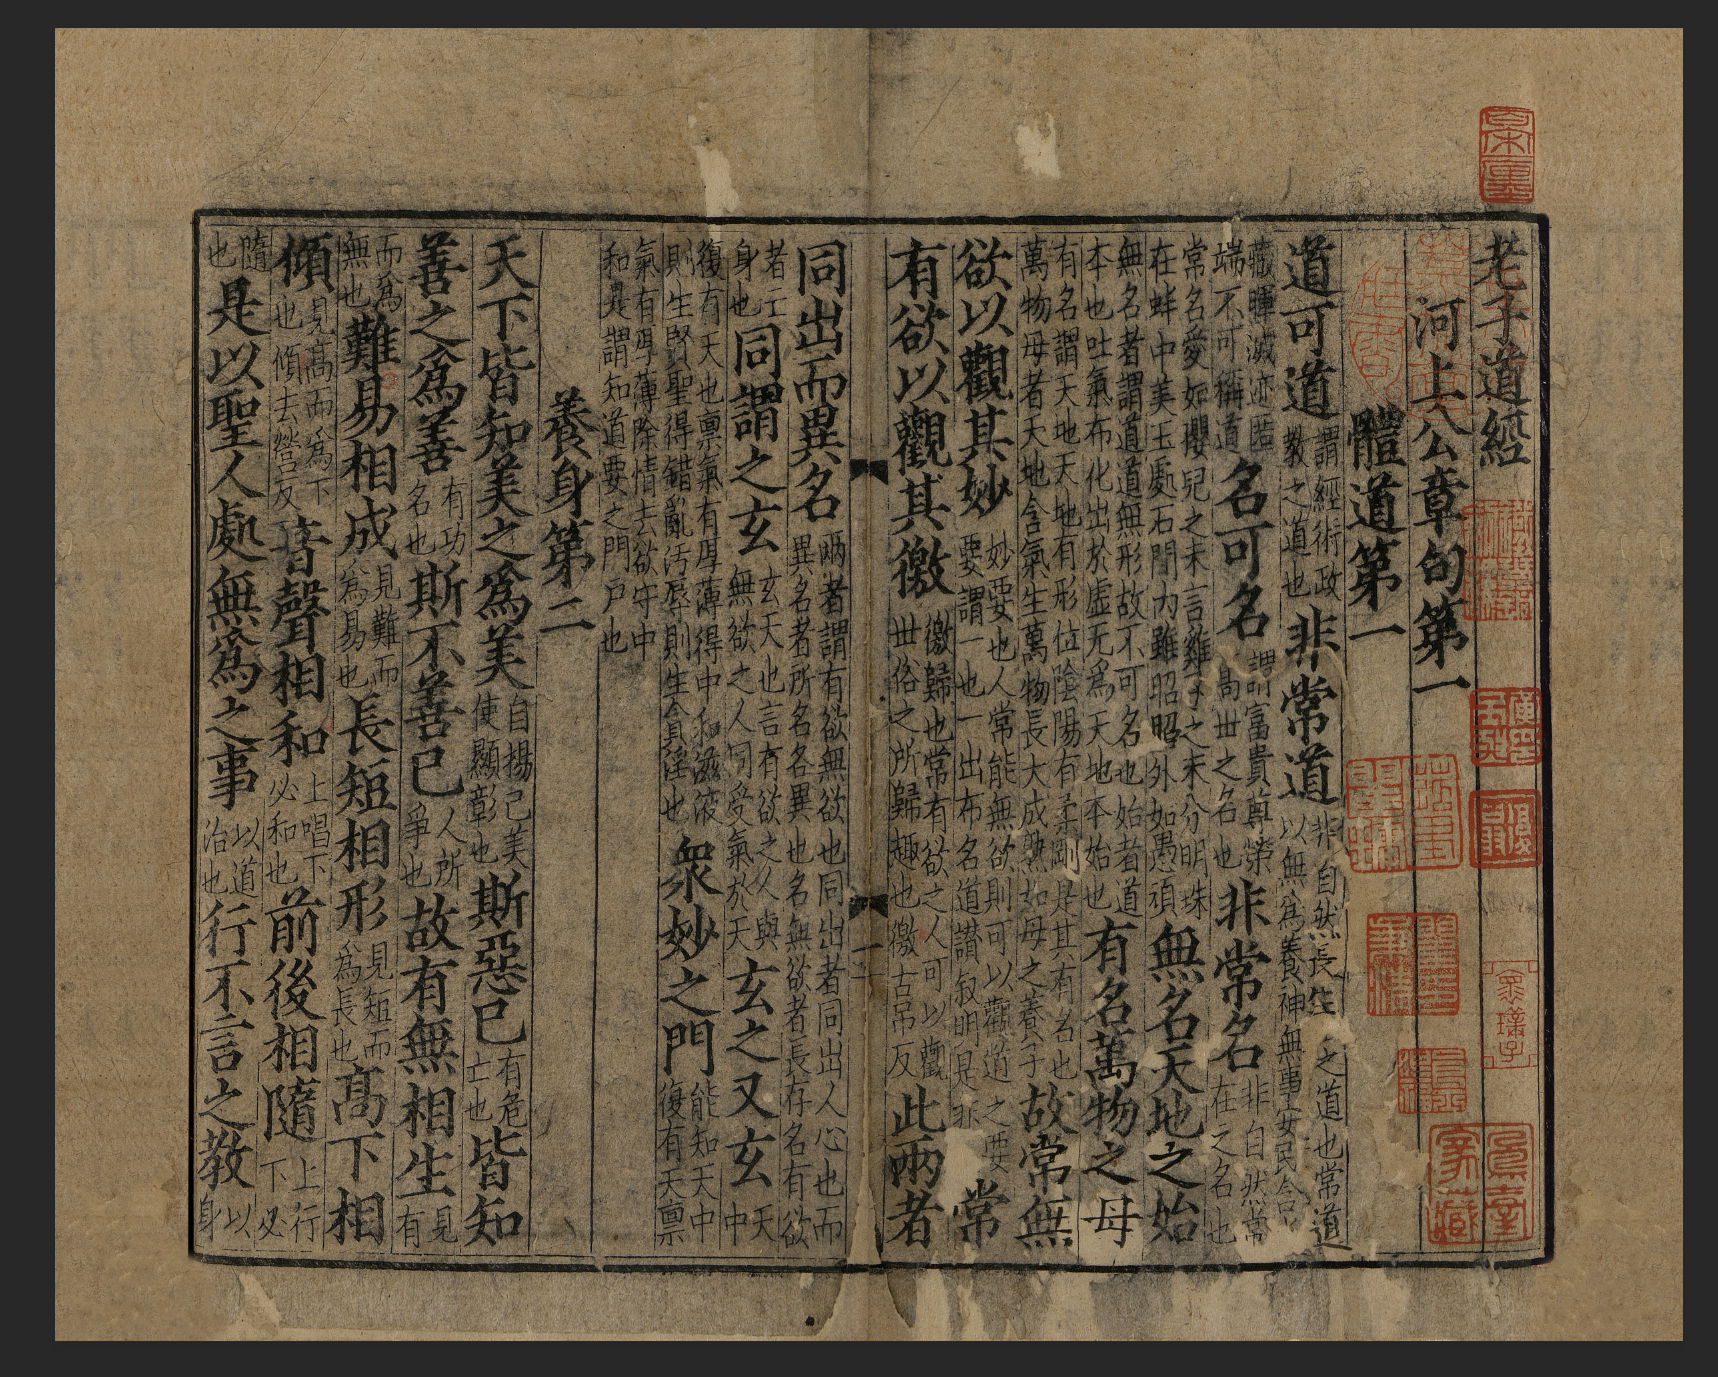 老子道經
河上公章句第一
體道第一
道可道謂經術政教之道也非常道非自然長生之道也常道以無爲養神無事安民含
藏暉滅迹匿端不可稱道名可名謂富貴尊榮高世之名也非常名非自然常在之名也
常名愛如嬰兒之未言雞子之未分明珠在蚌中美玉處石間內雖昭昭外如愚頑無名天地之始
無名者謂道道無形故不可名也始者道本也吐氣布化出於虛无爲天地本始也有名萬物之母
有名謂天地天地有形位陰陽有柔剛是其有名也萬物母者天地含氣生萬物長大成熟如母之養子故常無
欲以觀其妙妙要也人常能無欲則可以觀道之要要謂一也一出布名道讚叙明是非常
有欲以觀其徼徼歸也常有欲之人可以觀世俗之所歸趣也徼古吊反此兩者
同出而異名兩者謂有欲無欲也同出者同出人心也而異名者所名各異也名無欲者長存名有欲
者亡身也同謂之玄玄天也言有欲之人與無欲之人同受氣於天玄之又玄天中
復有天也禀氣有厚薄得中和滋液則生賢聖得錯亂汚辱則生貪淫也衆妙之門能知天中復有天禀
氣有厚薄除情去欲守中和是謂知道要之門戶也
養身第二
天下皆知美之爲美自揚己美使顯彰也斯惡已有危亡也皆知
善之爲善有功名也斯不善已人所爭也故有無相生見有
而爲無也難易相成見難而爲易也長短相形見短而爲長也高下相
傾見高而爲下也傾去營反音聲相和上唱下必和也前後相隨上行下必
隨也是以聖人處無爲之事以道治也行不言之教以身
二